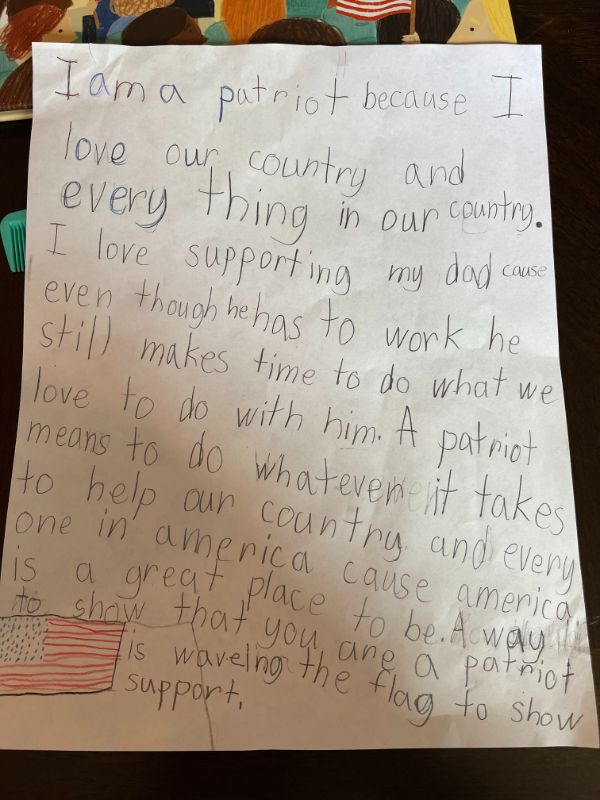 I am a patriot because I
love our country and
every thing in our country.
I love supporting my dad cause
even though he has to work he
still makes time to do what we
love to do with him. A patriot
means to do whatever it takes
to help our country and every
one in america cause america
is a great place to be. A way
to show that you are a patriot
is waveing the flag to show
support.